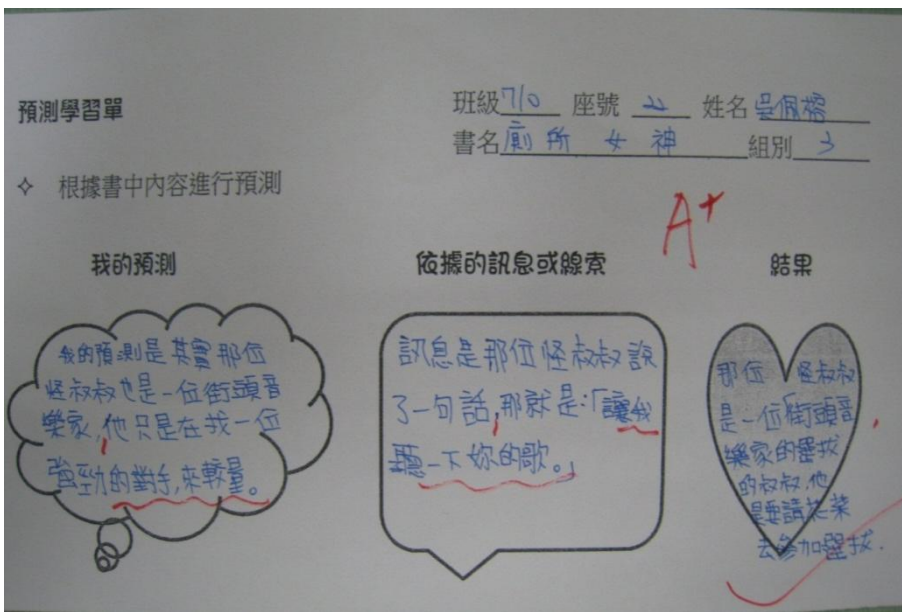 預測學習單
班級710 座號 22 姓名吳佩榕
書名廁所女神 組別3
✧ 根據書中內容進行預測
A+
我的預測
我的預測是其實那位
怪叔叔也是一位街頭音
樂家,他只是在找一位
強勁的對手,來較量。
依據的訊息或線索
訊息是那位怪叔叔說
了一句話,那就是:「讓我
聽一下妳的歌。」
結果
那位怪叔叔
是一位「街頭音
樂家的選拔
的叔叔,他
是要請花菜
去參加選拔.